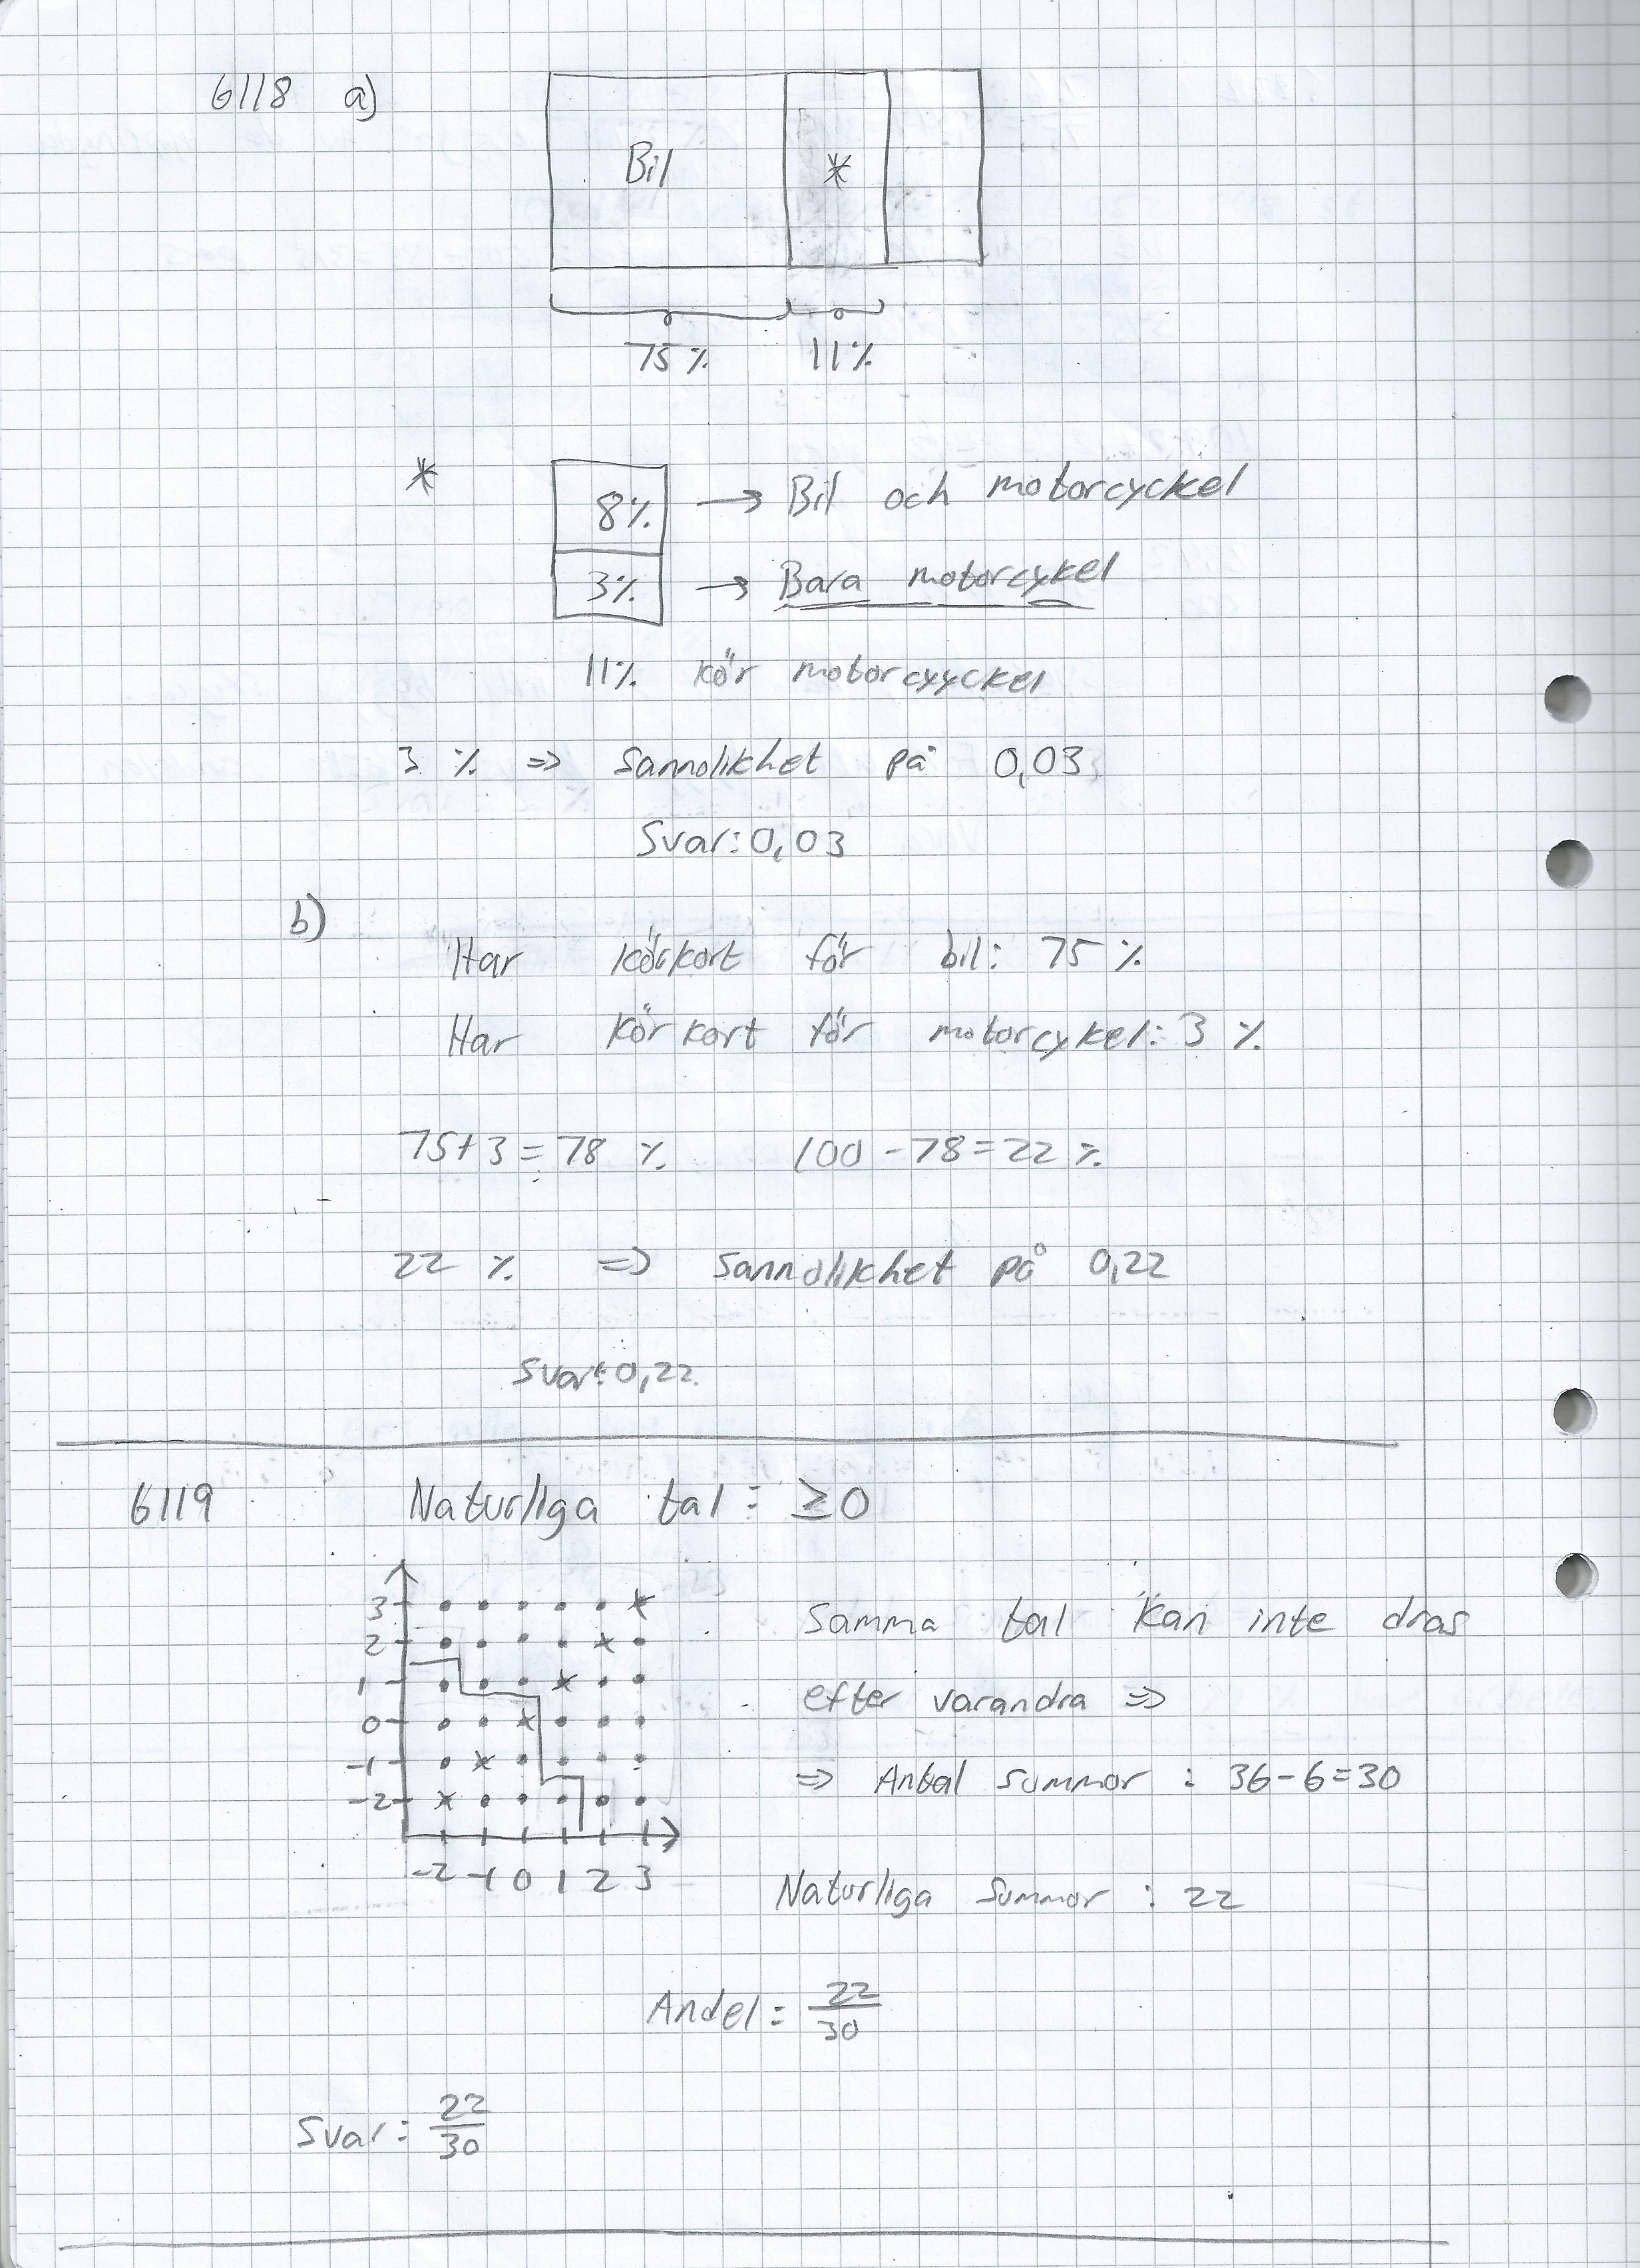 6118 a)
Bil *
75 % 11 %
* 8 % → Bil och motorcyckel
3 % → Bara motorcykel
11 % kör motorcyyckel
3 % => Sannolikhet på 0,03
Svar: 0,03
b)
Har körkort för bil: 75 %
Har körkort för motorcykel: 3 %
75+3=78 % 100-78=22 %
22 % => Sannolikhet på 0,22
Svar: 0,22
6119 Naturliga tal = ≥0
3
2
1
0
-1
-2
-2 -1 0 1 2 3
Samma tal kan inte dras
efter varandra =>
=> Antal summor : 36-6=30
Naturliga summor : 22
Andel = 22/30
Svar: 22/30